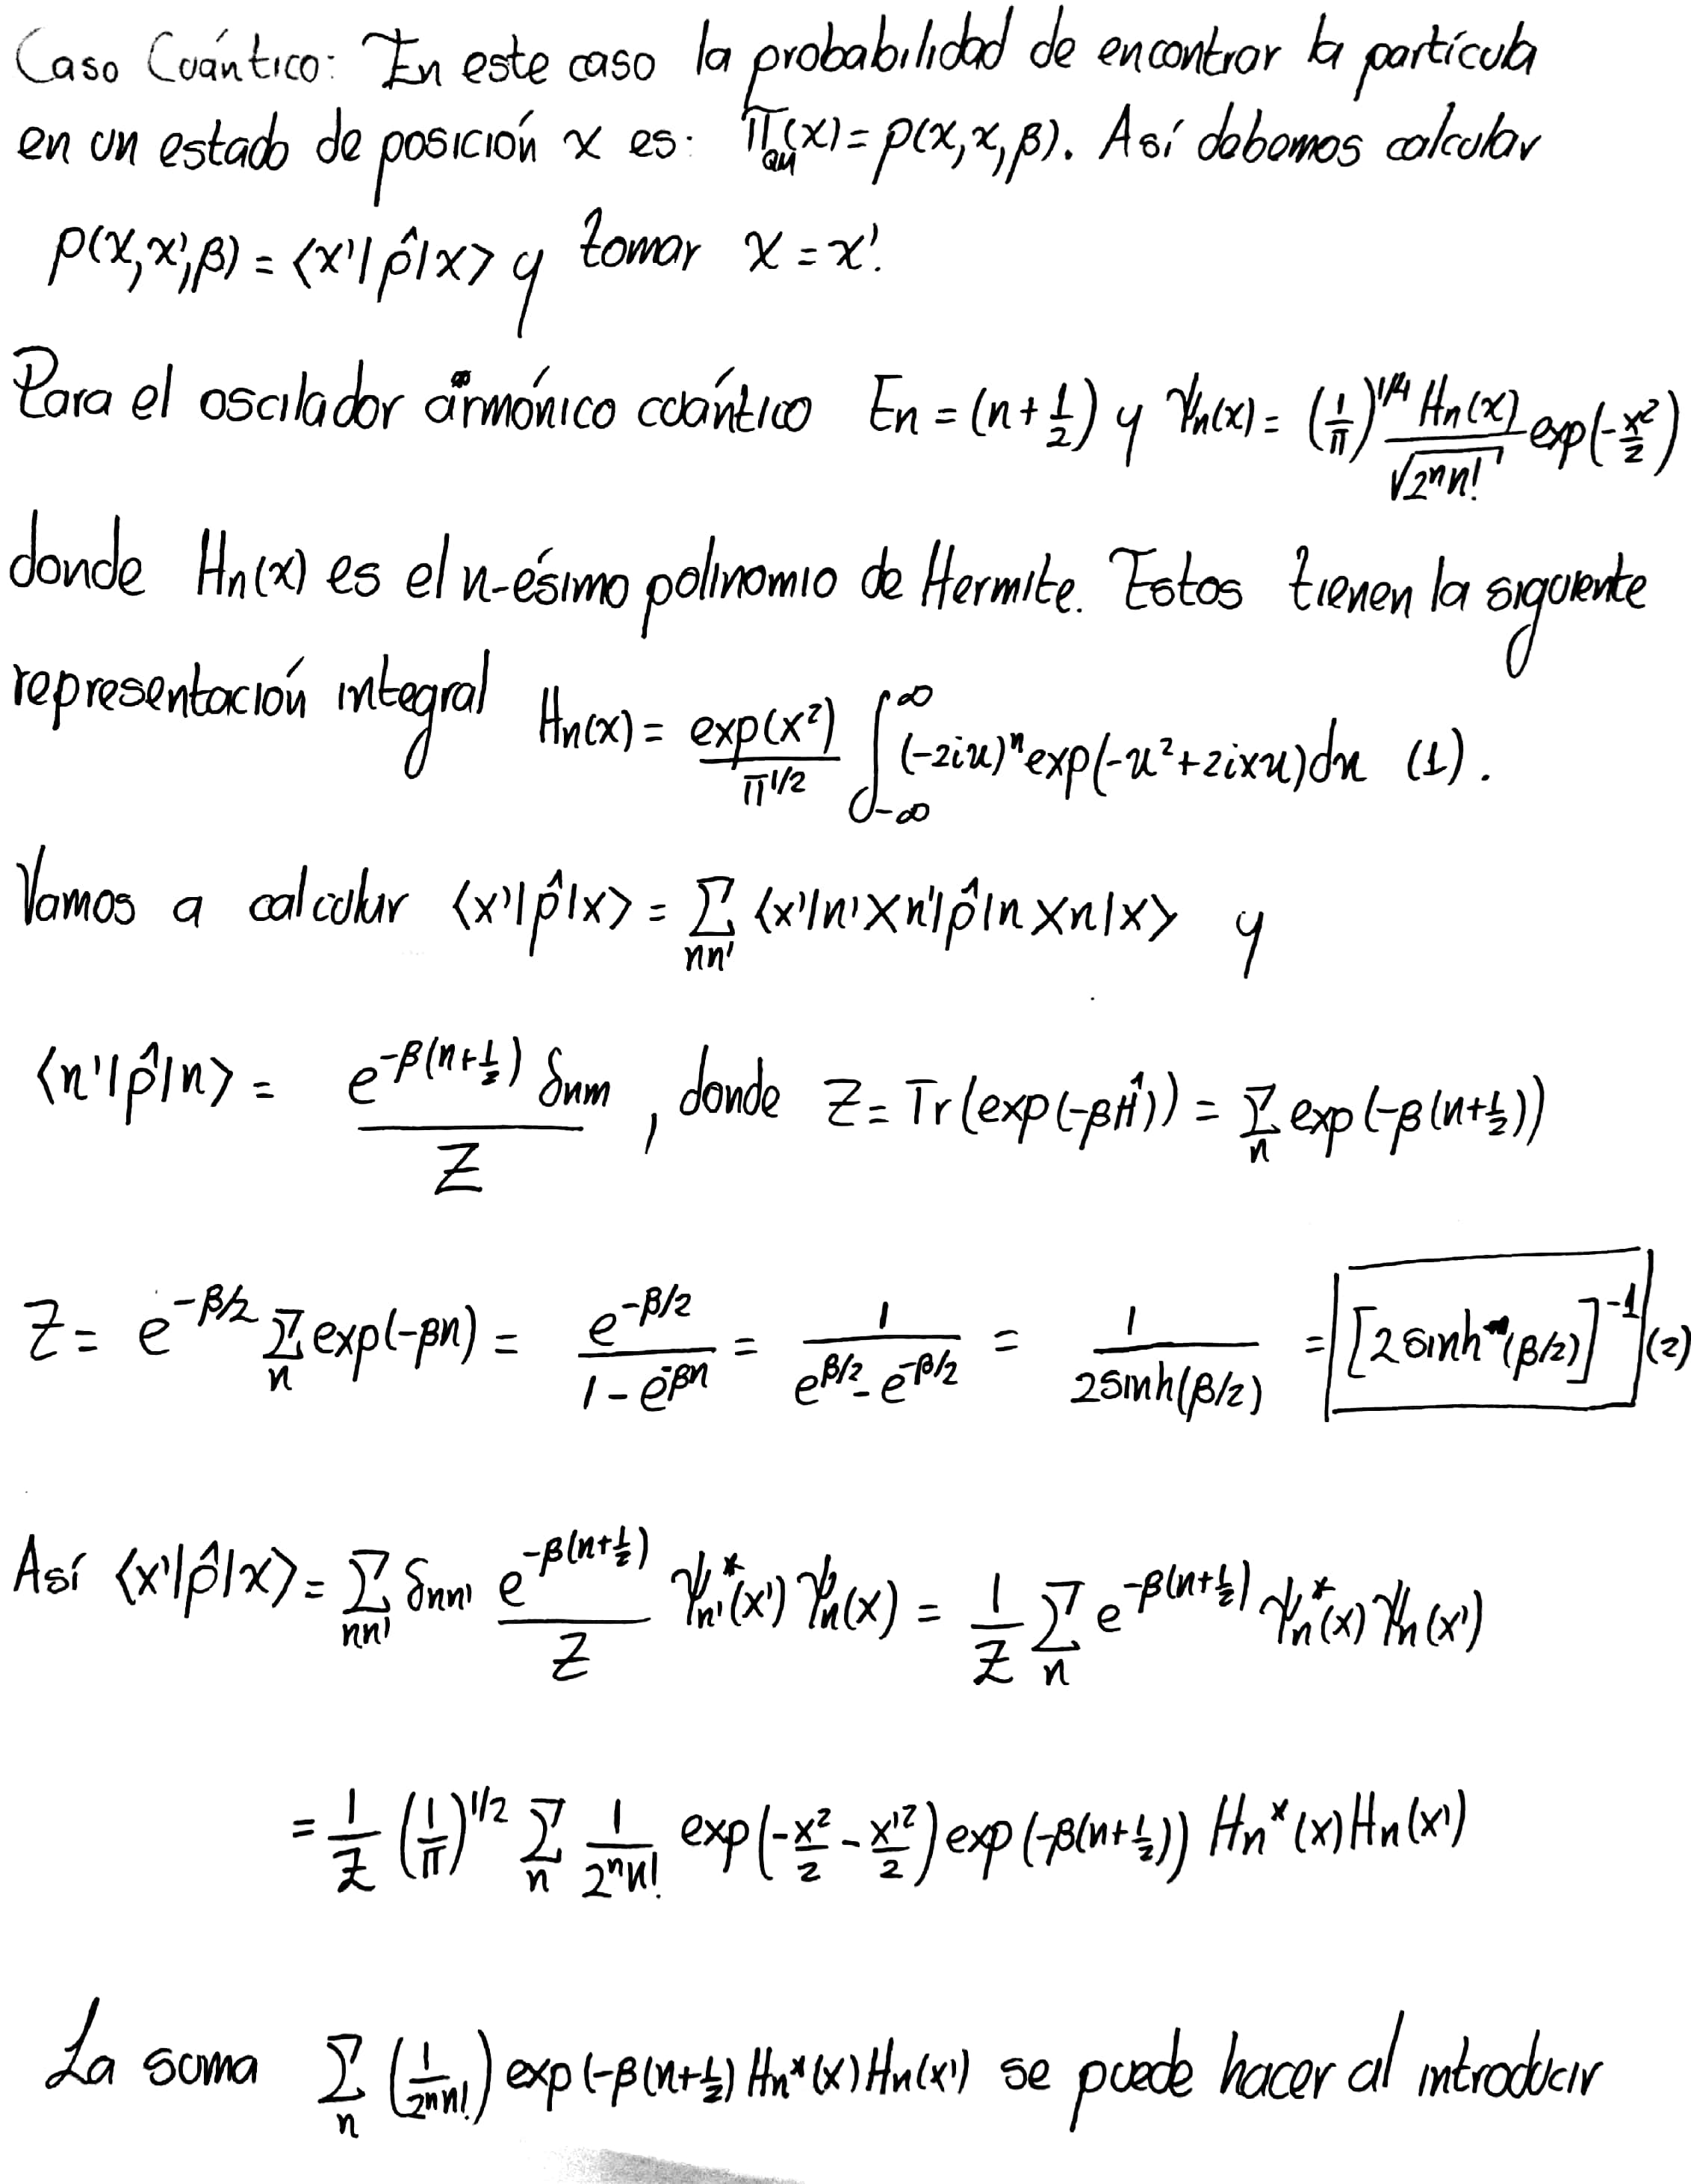 Caso Cuántico: En este caso la probabilidad de encontrar la partícula
en un estado de posición x es: π_QM(x) = ρ(x,x,β). Así debemos calcular
ρ(x,x',β) = ⟨x'|ρ̂|x⟩ y tomar x = x'.
Para el oscilador armónico cuántico En = (n+1/2) y ψn(x) = (1/π)^1/4 Hn(x)/√(2^n n!) exp(-x²/2)
donde Hn(x) es el n-ésimo polinomio de Hermite. Estos tienen la siguiente
representación integral Hn(x) = exp(x²)/π^1/2 ∫_-∞^∞ (-2iu)^n exp(-u²+2ixu)du (1).
Vamos a calcular ⟨x'|ρ̂|x⟩ = Σ_nn' ⟨x'|n'⟩⟨n'|ρ̂|n⟩⟨n|x⟩ y
⟨n'|ρ̂|n⟩ = e^-β(n+1/2) δnm / Z, donde Z = Tr(exp(-βĤ)) = Σ_n exp(-β(n+1/2))
Z = e^-β/2 Σ_n exp(-βn) = e^-β/2 / (1-e^-βn) = 1/(e^β/2 - e^-β/2) = 1/(2sinh(β/2)) = [2sinh(β/2)]^-1 (2)
Así ⟨x'|ρ̂|x⟩ = Σ_nn' δnn' e^-β(n+1/2)/Z ψn'*(x') ψn(x) = 1/Z Σ_n e^-β(n+1/2) ψn*(x) ψn(x')
= 1/Z (1/π)^1/2 Σ_n 1/(2^n n!) exp(-x²/2 - x'²/2) exp(-β(n+1/2)) Hn*(x) Hn(x')
La suma Σ_n (1/2^n n!) exp(-β(n+1/2) Hn*(x) Hn(x') se puede hacer al introducir